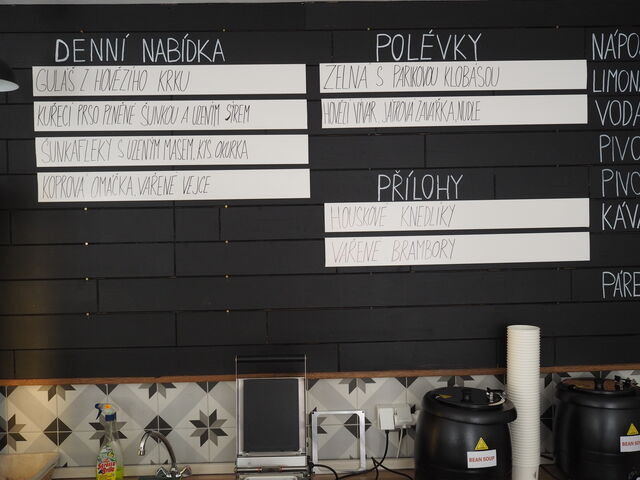 DENNÍ NABÍDKA
GULÁŠ Z HOVĚZÍHO KRKU
KUŘECÍ PRSO PLNĚNÉ ŠUNKOU A UZENÝM SÝREM
ŠUNKAFLEKY S UZENÝM MASEM, KYS. OKURKA
KOPROVÁ OMÁČKA, VAŘENÉ VEJCE
POLÉVKY
ZELNÁ S PAPRIKOVOU KLOBÁSOU
HOVĚZÍ VÝVAR, JÁTROVÁ ZAVÁŘKA, NUDLE
PŘÍLOHY
HOUSKOVÉ KNEDLÍKY
VAŘENÉ BRAMBORY
NÁPO
LIMONÁ
VODA
PIVO
PIVO
KÁVA
PÁRE
BEAN SOUP
BEAN SOUP